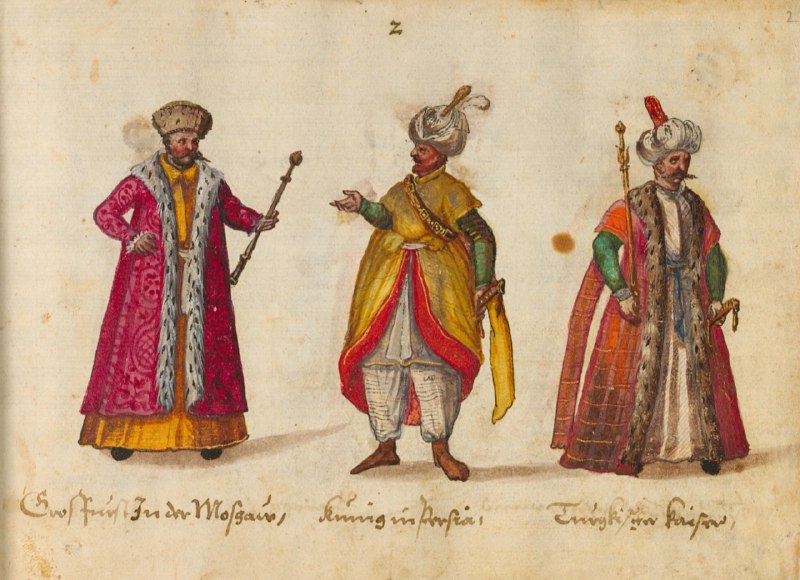 2
2
Gros Fürst In der Mosgaw,
Künig in Persia,
Türgkischer Kaiser,